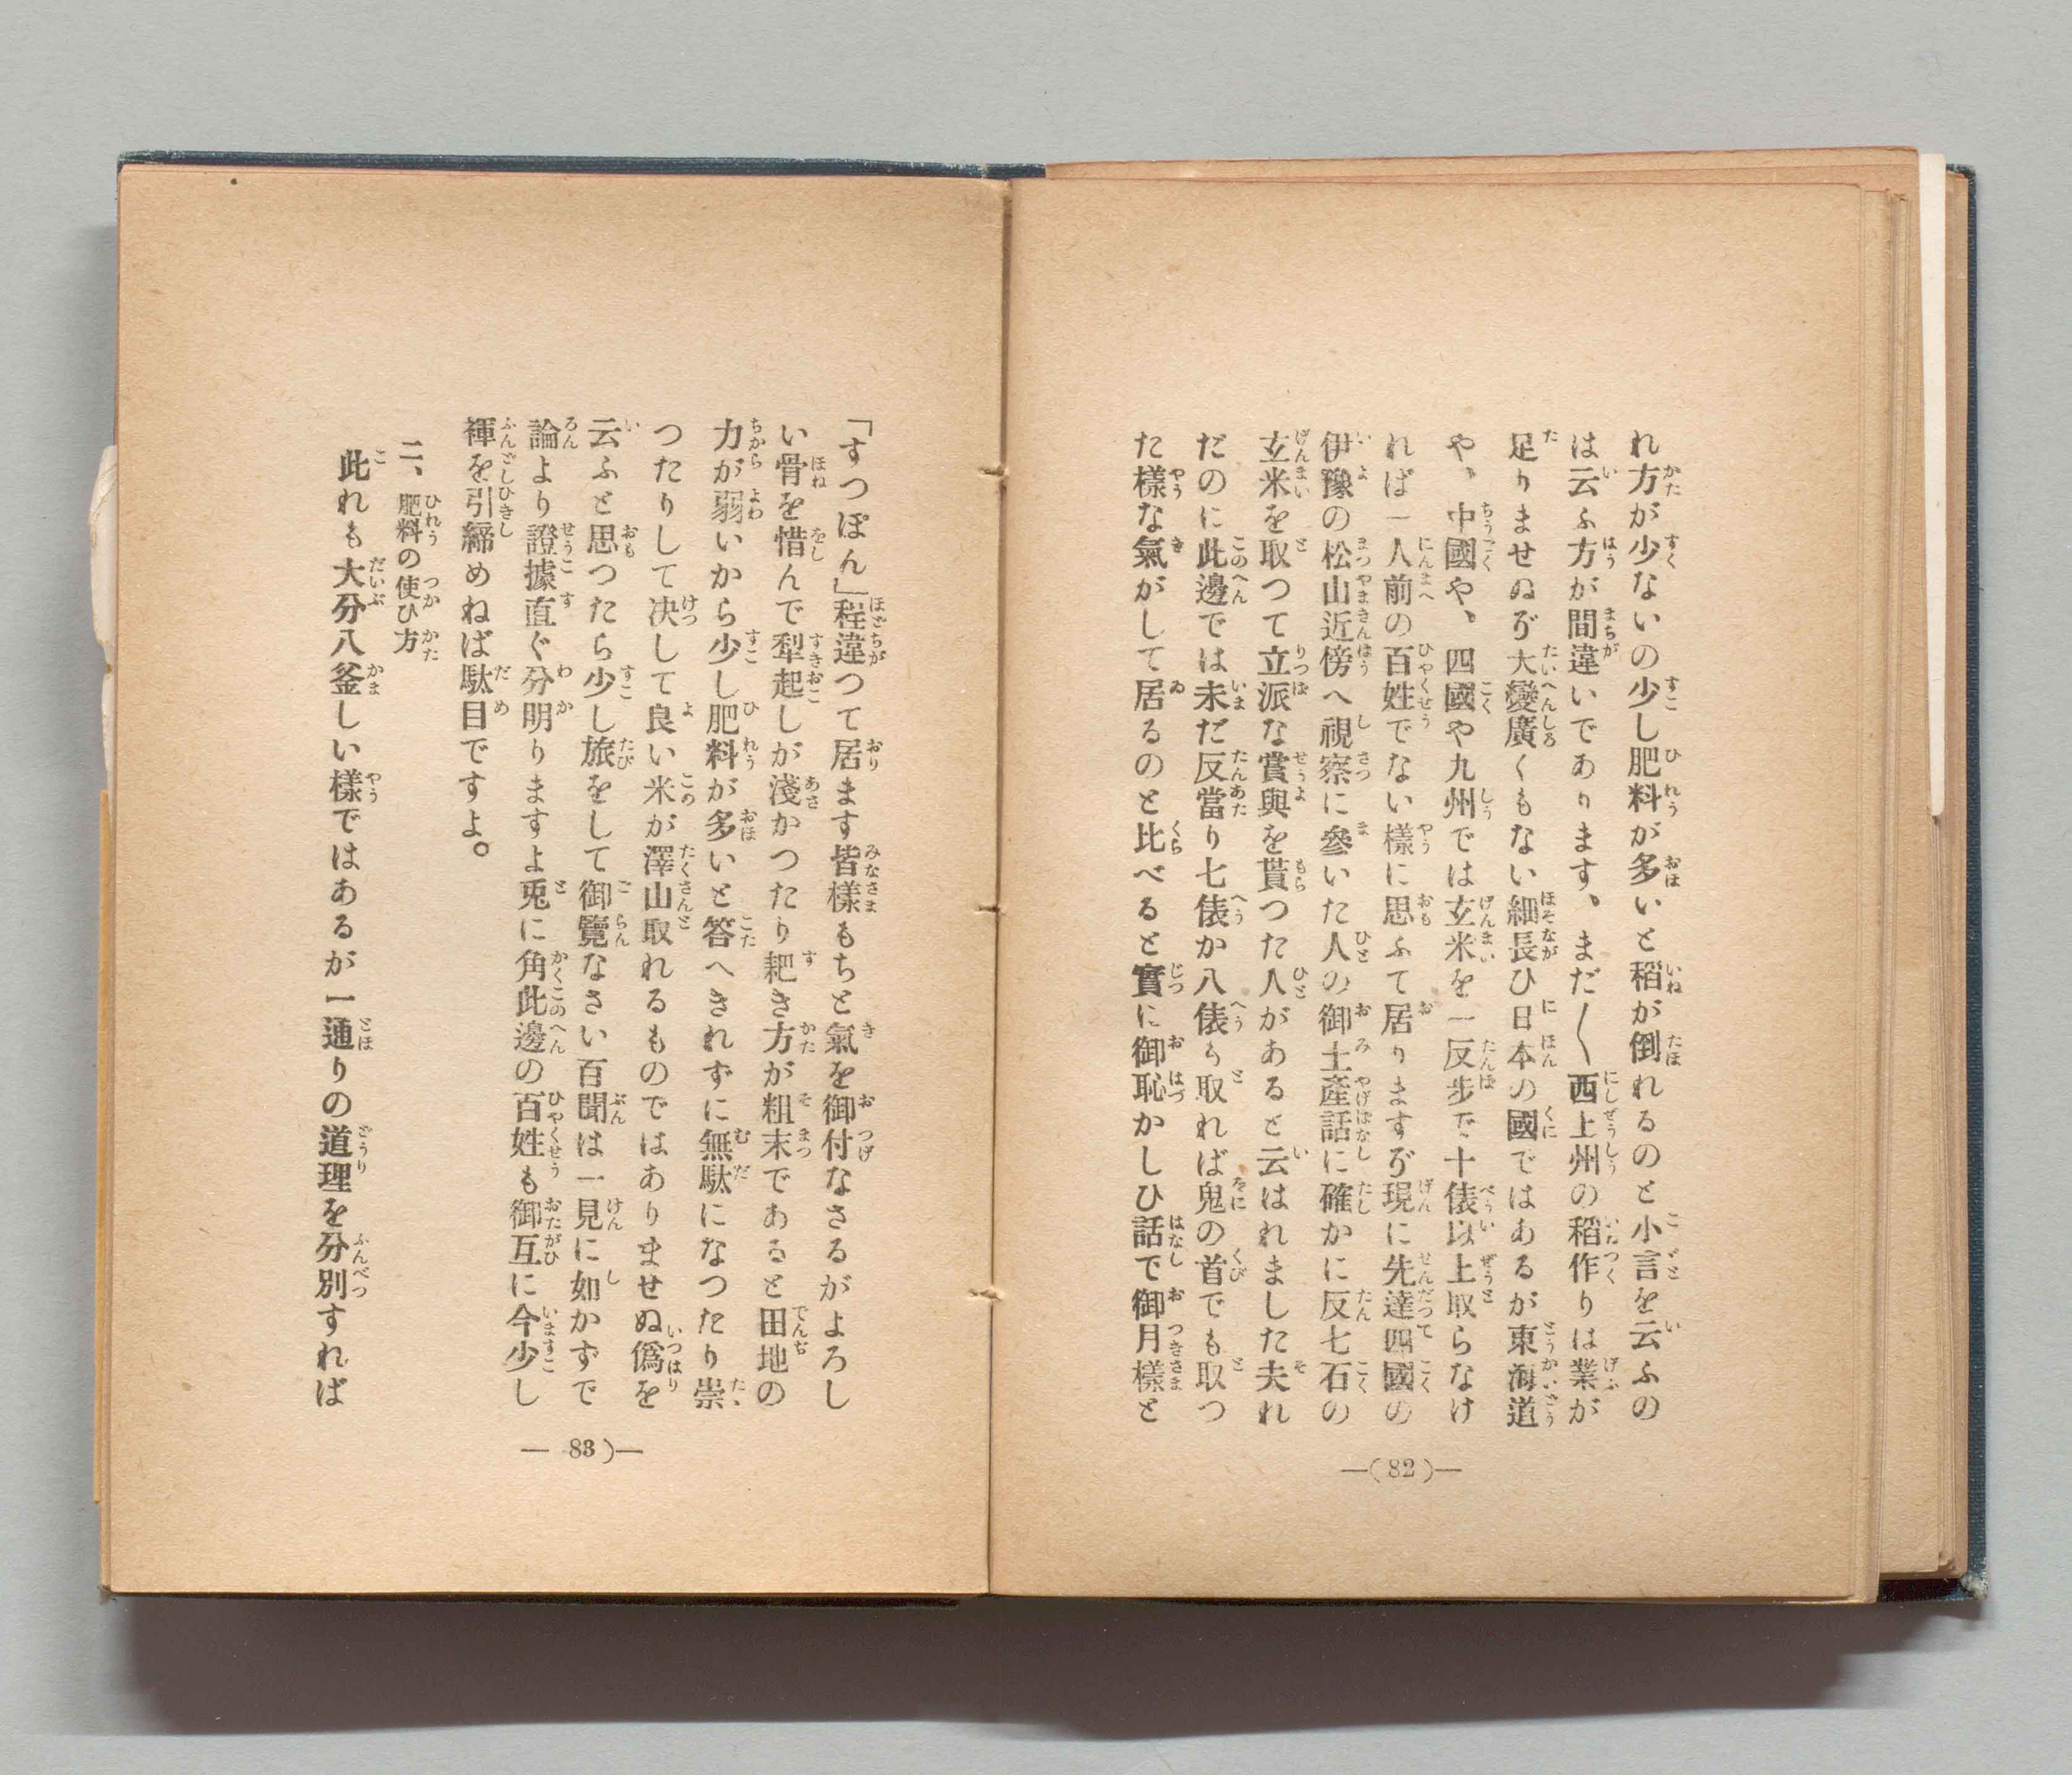 れ方が少ないの少し肥料が多いと稻が倒れるのと小言を云ふの
は云ふ方が間違いであります、まだ〱西上州の稻作りは業が
足りませぬが大變廣くもない細長ひ日本の國ではあるが東海道
や、中國や、四國や九州では玄米を一反步で十俵以上取らなけ
れば一人前の百姓でない樣に思ふて居りますが現に先達四國の
伊豫の松山近傍へ視察に參いた人の御土產話に確かに反七石の
玄米を取つて立派な賞與を貰つた人があると云はれました夫れ
だのに此邊では未だ反當り七俵か八俵も取れば鬼の首でも取つ
た樣な氣がして居るのと比べると實に御恥かしひ話で御月樣と
—(82)—
「すつぽん」程違つて居ます皆樣もちと氣を御付なさるがよろし
い骨を惜んで犁起しが淺かつたり耙き方が粗末であると田地の
力が弱いから少し肥料が多いと答へきれずに無駄になつたり祟
つたりして决して良い米が澤山取れるものではありませぬ僞を
云ふと思つたら少し旅をして御覽なさい百聞は一見に如かずで
論より證據直ぐ分明りますよ兎に角此邊の百姓も御互に今少し
褌を引締めねば駄目ですよ。
二、肥料の使ひ方
此れも大分八釜しい樣ではあるが一通りの道理を分別すれば
— 83)—